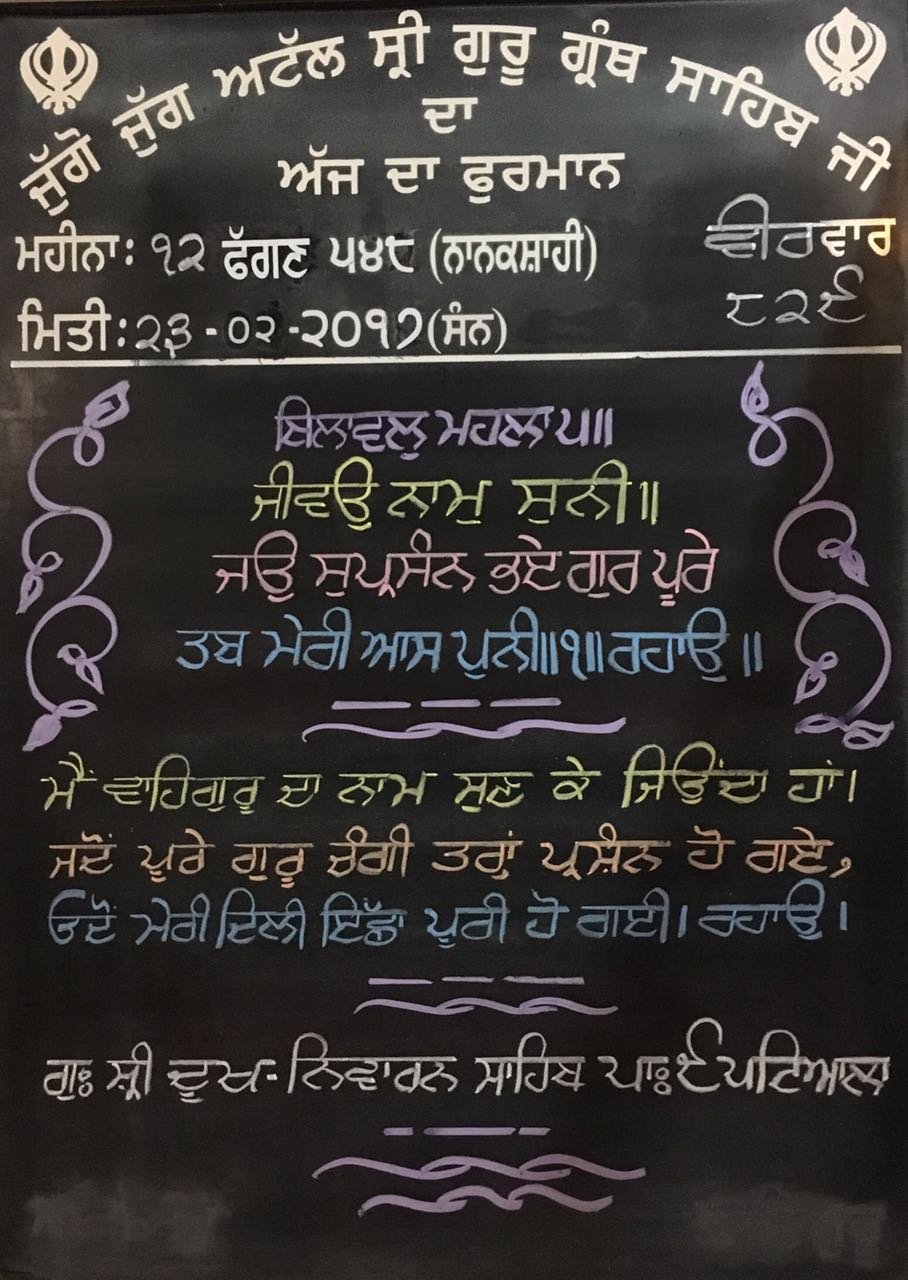 ਜੁੱਗੋ ਜੁੱਗ ਅਟੱਲ ਸ੍ਰੀ ਗੁਰੂ ਗ੍ਰੰਥ ਸਾਹਿਬ ਜੀ
ਦਾ
ਅੱਜ ਦਾ ਫੁਰਮਾਨ
ਮਹੀਨਾ: ੧੨ ਫੱਗਣ ੫੪੮ (ਨਾਨਕਸ਼ਾਹੀ) ਵੀਰਵਾਰ
ਮਿਤੀ: ੨੩-੦੨-੨੦੧੭ (ਸੰਨ) ੮੨੯
ਬਿਲਾਵਲੁ ਮਹਲਾ ੫॥
ਜੀਵਉ ਨਾਮੁ ਸੁਨੀ॥
ਜਉ ਸੁਪ੍ਰਸੰਨ ਭਏ ਗੁਰ ਪੂਰੇ
ਤਬ ਮੇਰੀ ਆਸ ਪੁਨੀ॥੧॥ ਰਹਾਉ॥
ਮੈਂ ਵਾਹਿਗੁਰੂ ਦਾ ਨਾਮ ਸੁਣ ਕੇ ਜਿਉਂਦਾ ਹਾਂ।
ਜਦੋਂ ਪੂਰੇ ਗੁਰੂ ਚੰਗੀ ਤਰਾਂ ਪ੍ਰਸ਼ੰਨ ਹੋ ਗਏ,
ਓਦੋਂ ਮੇਰੀ ਦਿਲੀ ਇੱਛਾ ਪੂਰੀ ਹੋ ਗਈ। ਰਹਾਉ।
ਗੁਃ ਸ਼੍ਰੀ ਦੂਖ-ਨਿਵਾਰਨ ਸਾਹਿਬ ਪਾਃ ੯ ਪਟਿਆਲਾ